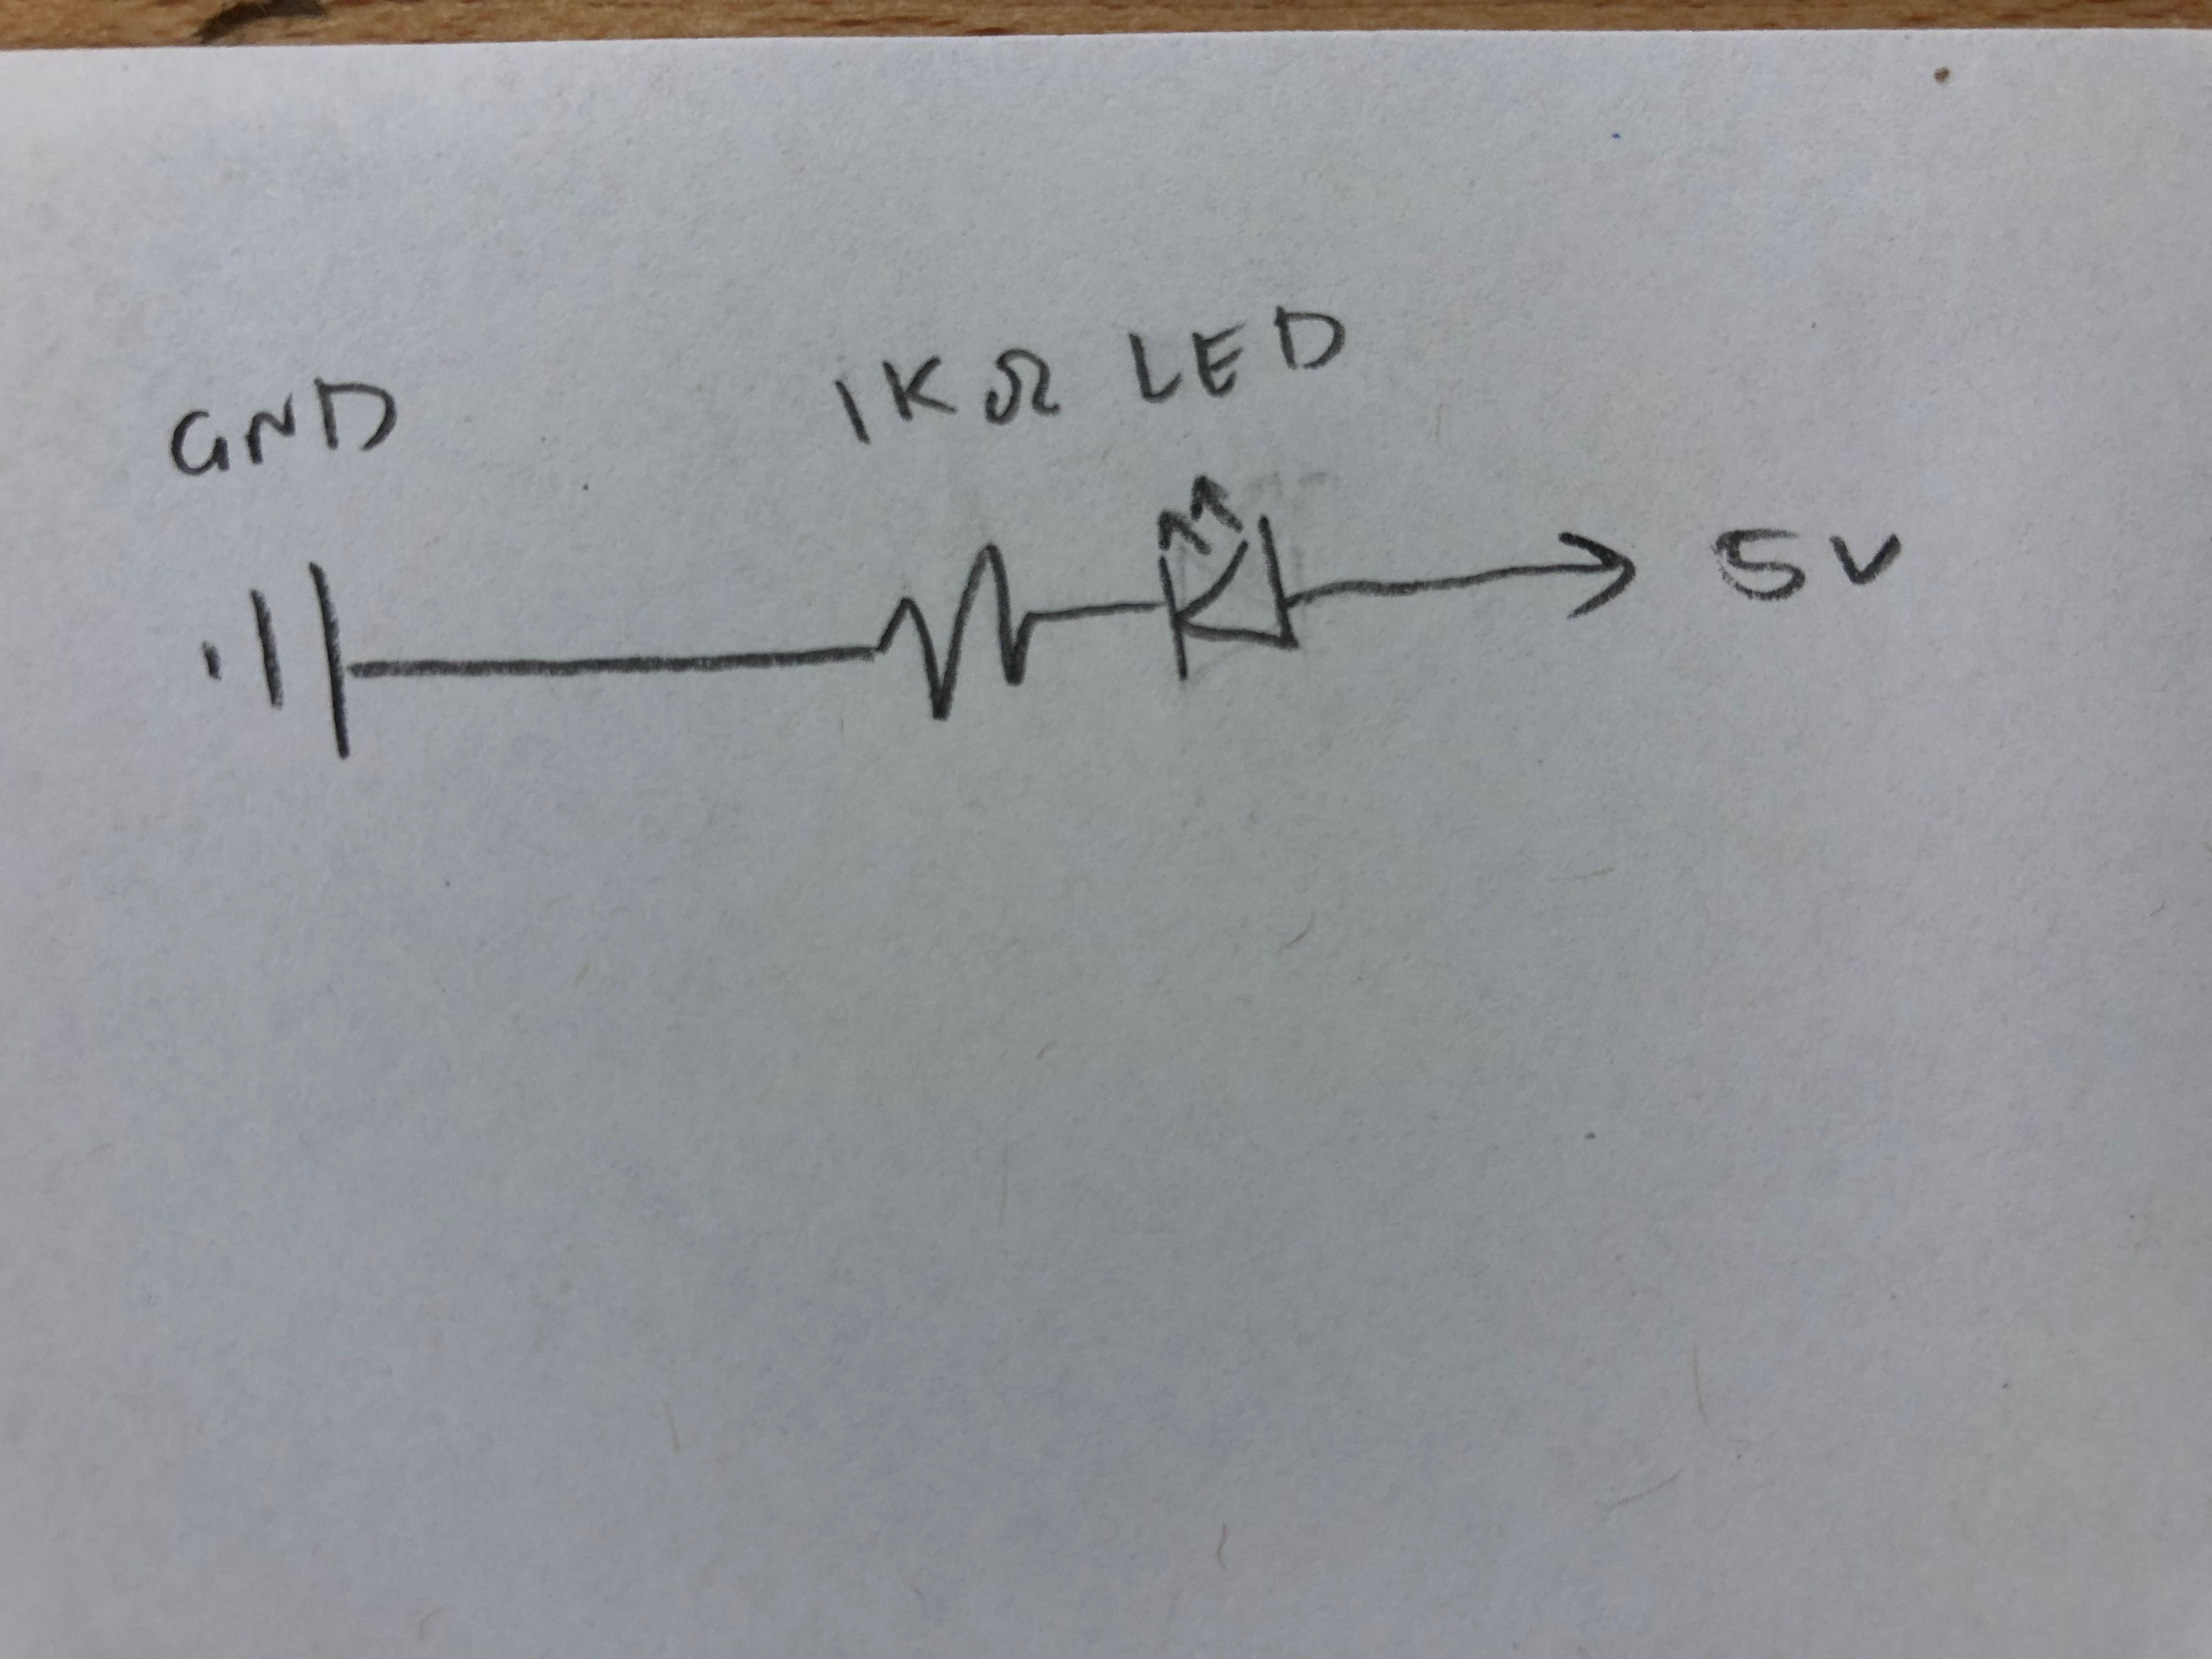 GND
1KΩ LED
5V